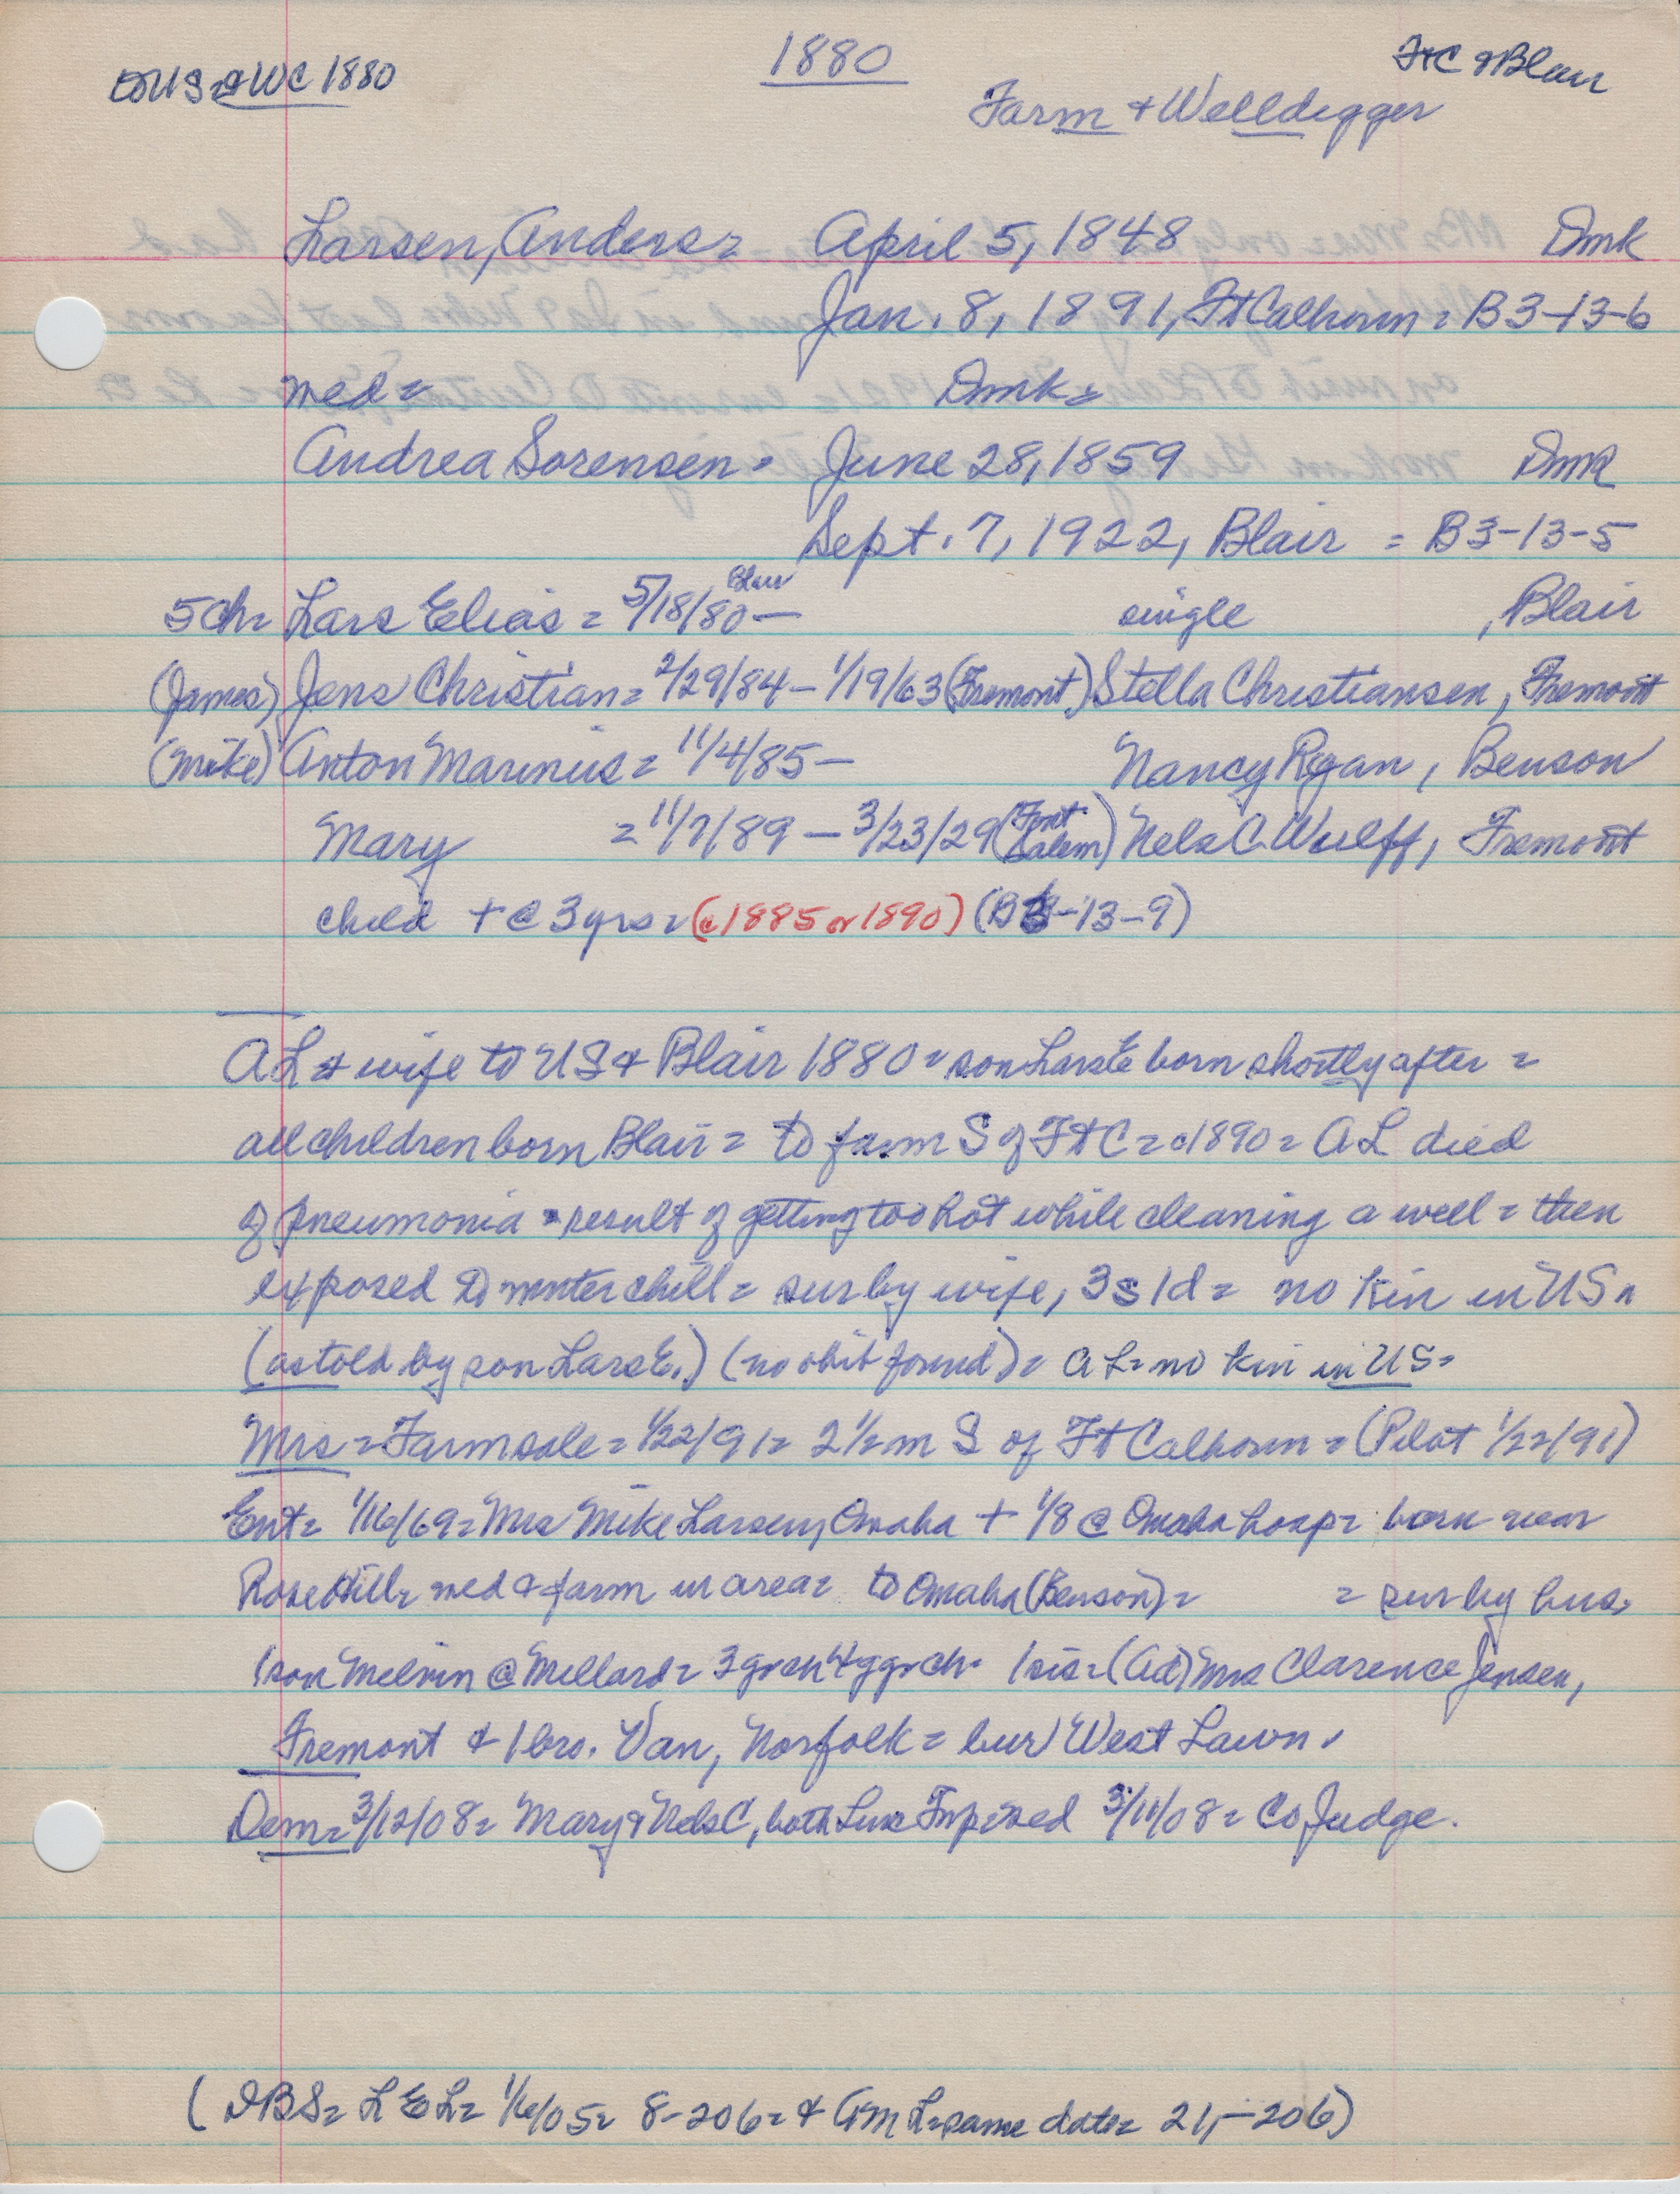 to US & WC 1880
1880
Ft C & Blair
Farm & Welldigger
Larsen, Anders = April 5, 1848 Dmk
Jan. 8, 1891, Ft Calhoun = B3-13-6
med = Dmk =
Andrea Sorensen = June 28, 1859 Dmk
Sept. 7, 1922, Blair = B3-13-5
5 ch = Lars Elias = 5/18/80 Blair — single , Blair
(James) Jens Christian = 2/29/84 — 1/19/63 (Fremont) Stella Christiansen, Fremont
(Mike) Anton Marinus = 11/4/85 — Nancy Ryan, Benson
Mary = 11/7/89 — 3/23/29 (Font Salem) Nels C. Wulff, Fremont
child + @ 3 yrs = (c 1885 or 1890) (B3-13-9)
AL & wife to US & Blair 1880 = son Lars E born shortly after =
all children born Blair = to farm S of Ft C = c1890 = AL died
of pneumonia = result of getting too hot while cleaning a well = then
exposed to winter chill = sur by wife, 3s 1d = no kin in US =
(as told by son Lars E.) (no obit found) = AL = no kin in US =
Mrs = Farm sale = 1/22/91 = 2 1/2 m S of Ft Calhoun = (Pilot 1/22/91)
Ent = 1/16/69 = Mrs Mike Larsen, Omaha + 1/8 @ Omaha hosp = born near
Rose Hill = med & farm in area = to Omaha (Benson) = = sur by hus,
1 son Melvin @ Millard = 3 grch 4 ggrch = 1 sis = (Ad) Mrs Clarence Jensen,
Fremont & 1 bro. Van, Norfolk = bur West Lawn.
Dem = 3/12/08 = Mary & Nels C, both med 3/11/08 = Co Judge.
(DBS = L E L = 8-206 = & AM L = same date = 21-206)